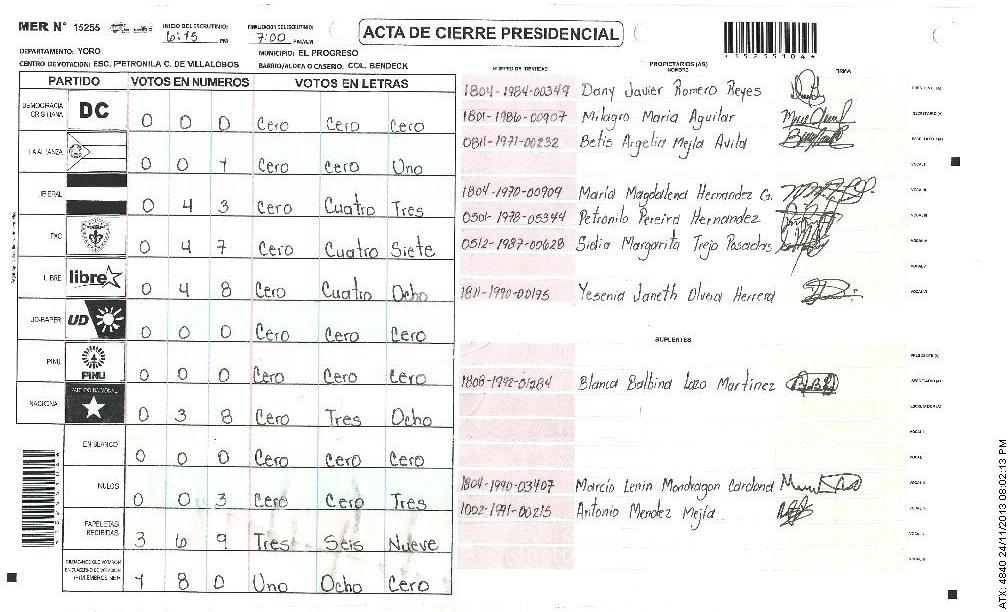 MER N° 15255
INICIO DEL ESCRUTINIO:
6:15 PM
FINALIZACION DEL ESCRUTINIO:
7:00 PM/A.M
ACTA DE CIERRE PRESIDENCIAL
152551044
DEPARTAMENTO: YORO
MUNICIPIO: EL PROGRESO
CENTRO DE VOTACION: ESC. PETRONILA C. DE VILLALOBOS
BARRIO/ALDEA O CASERIO: COL. BENDECK
PARTIDO VOTOS EN NUMEROS VOTOS EN LETRAS
DEMOCRACIA CRISTIANA DC 0 0 0 Cero Cero Cero
LA ALIANZA 0 0 1 Cero Cero Uno
LIBERAL 0 4 3 Cero Cuatro Tres
PAC 0 4 7 Cero Cuatro Siete
LIBRE libre 0 4 8 Cero Cuatro Ocho
UD-FAPER UD 0 0 0 Cero Cero Cero
PINU PINU 0 0 0 Cero Cero Cero
NACIONAL PARTIDO NACIONAL 0 3 8 Cero Tres Ocho
EN BLANCO 0 0 0 Cero Cero Cero
NULOS 0 0 3 Cero Cero Tres
PAPELETAS RECIBIDAS 3 6 9 Tres Seis Nueve
CIUDADANOS QUE VOTARON
EN CUADERNO DE VOTACION
(+) MIEMBROS MER 1 8 0 Uno Ocho Cero
NUMERO DE IDENTIDAD PROPIETARIOS (AS) NOMBRE FIRMA
1804-1984-00349 Dany Javier Romero Reyes PRESIDENTE(A)
1801-1986-00907 Milagro Maria Aguilar SECRETARIO(A)
0811-1971-00232 Betis Argelia Mejia Avila ESCRUTADOR(A)
VOCAL I
1804-1970-00909 Maria Magdalena Hernandez G. VOCAL II
0501-1978-05344 Petronilo Pereira Hernandez VOCAL III
0512-1987-00628 Sidia Margarita Trejo Posadas VOCAL IV
VOCAL V
1811-1990-00195 Yesenia Janeth Olvera Herrera VOCAL VI
SUPLENTES
PRESIDENTE(A)
1806-1992-01284 Blanca Balbina Lazo Martinez SECRETARIO(A)
ESCRUTADOR(A)
VOCAL I
VOCAL II
1804-1990-03407 Marcio Lenin Mondragon Cardona
1002-1991-00215 Antonio Mendez Mejia
ATX: 4840 24/11/2013 08:02:13 PM